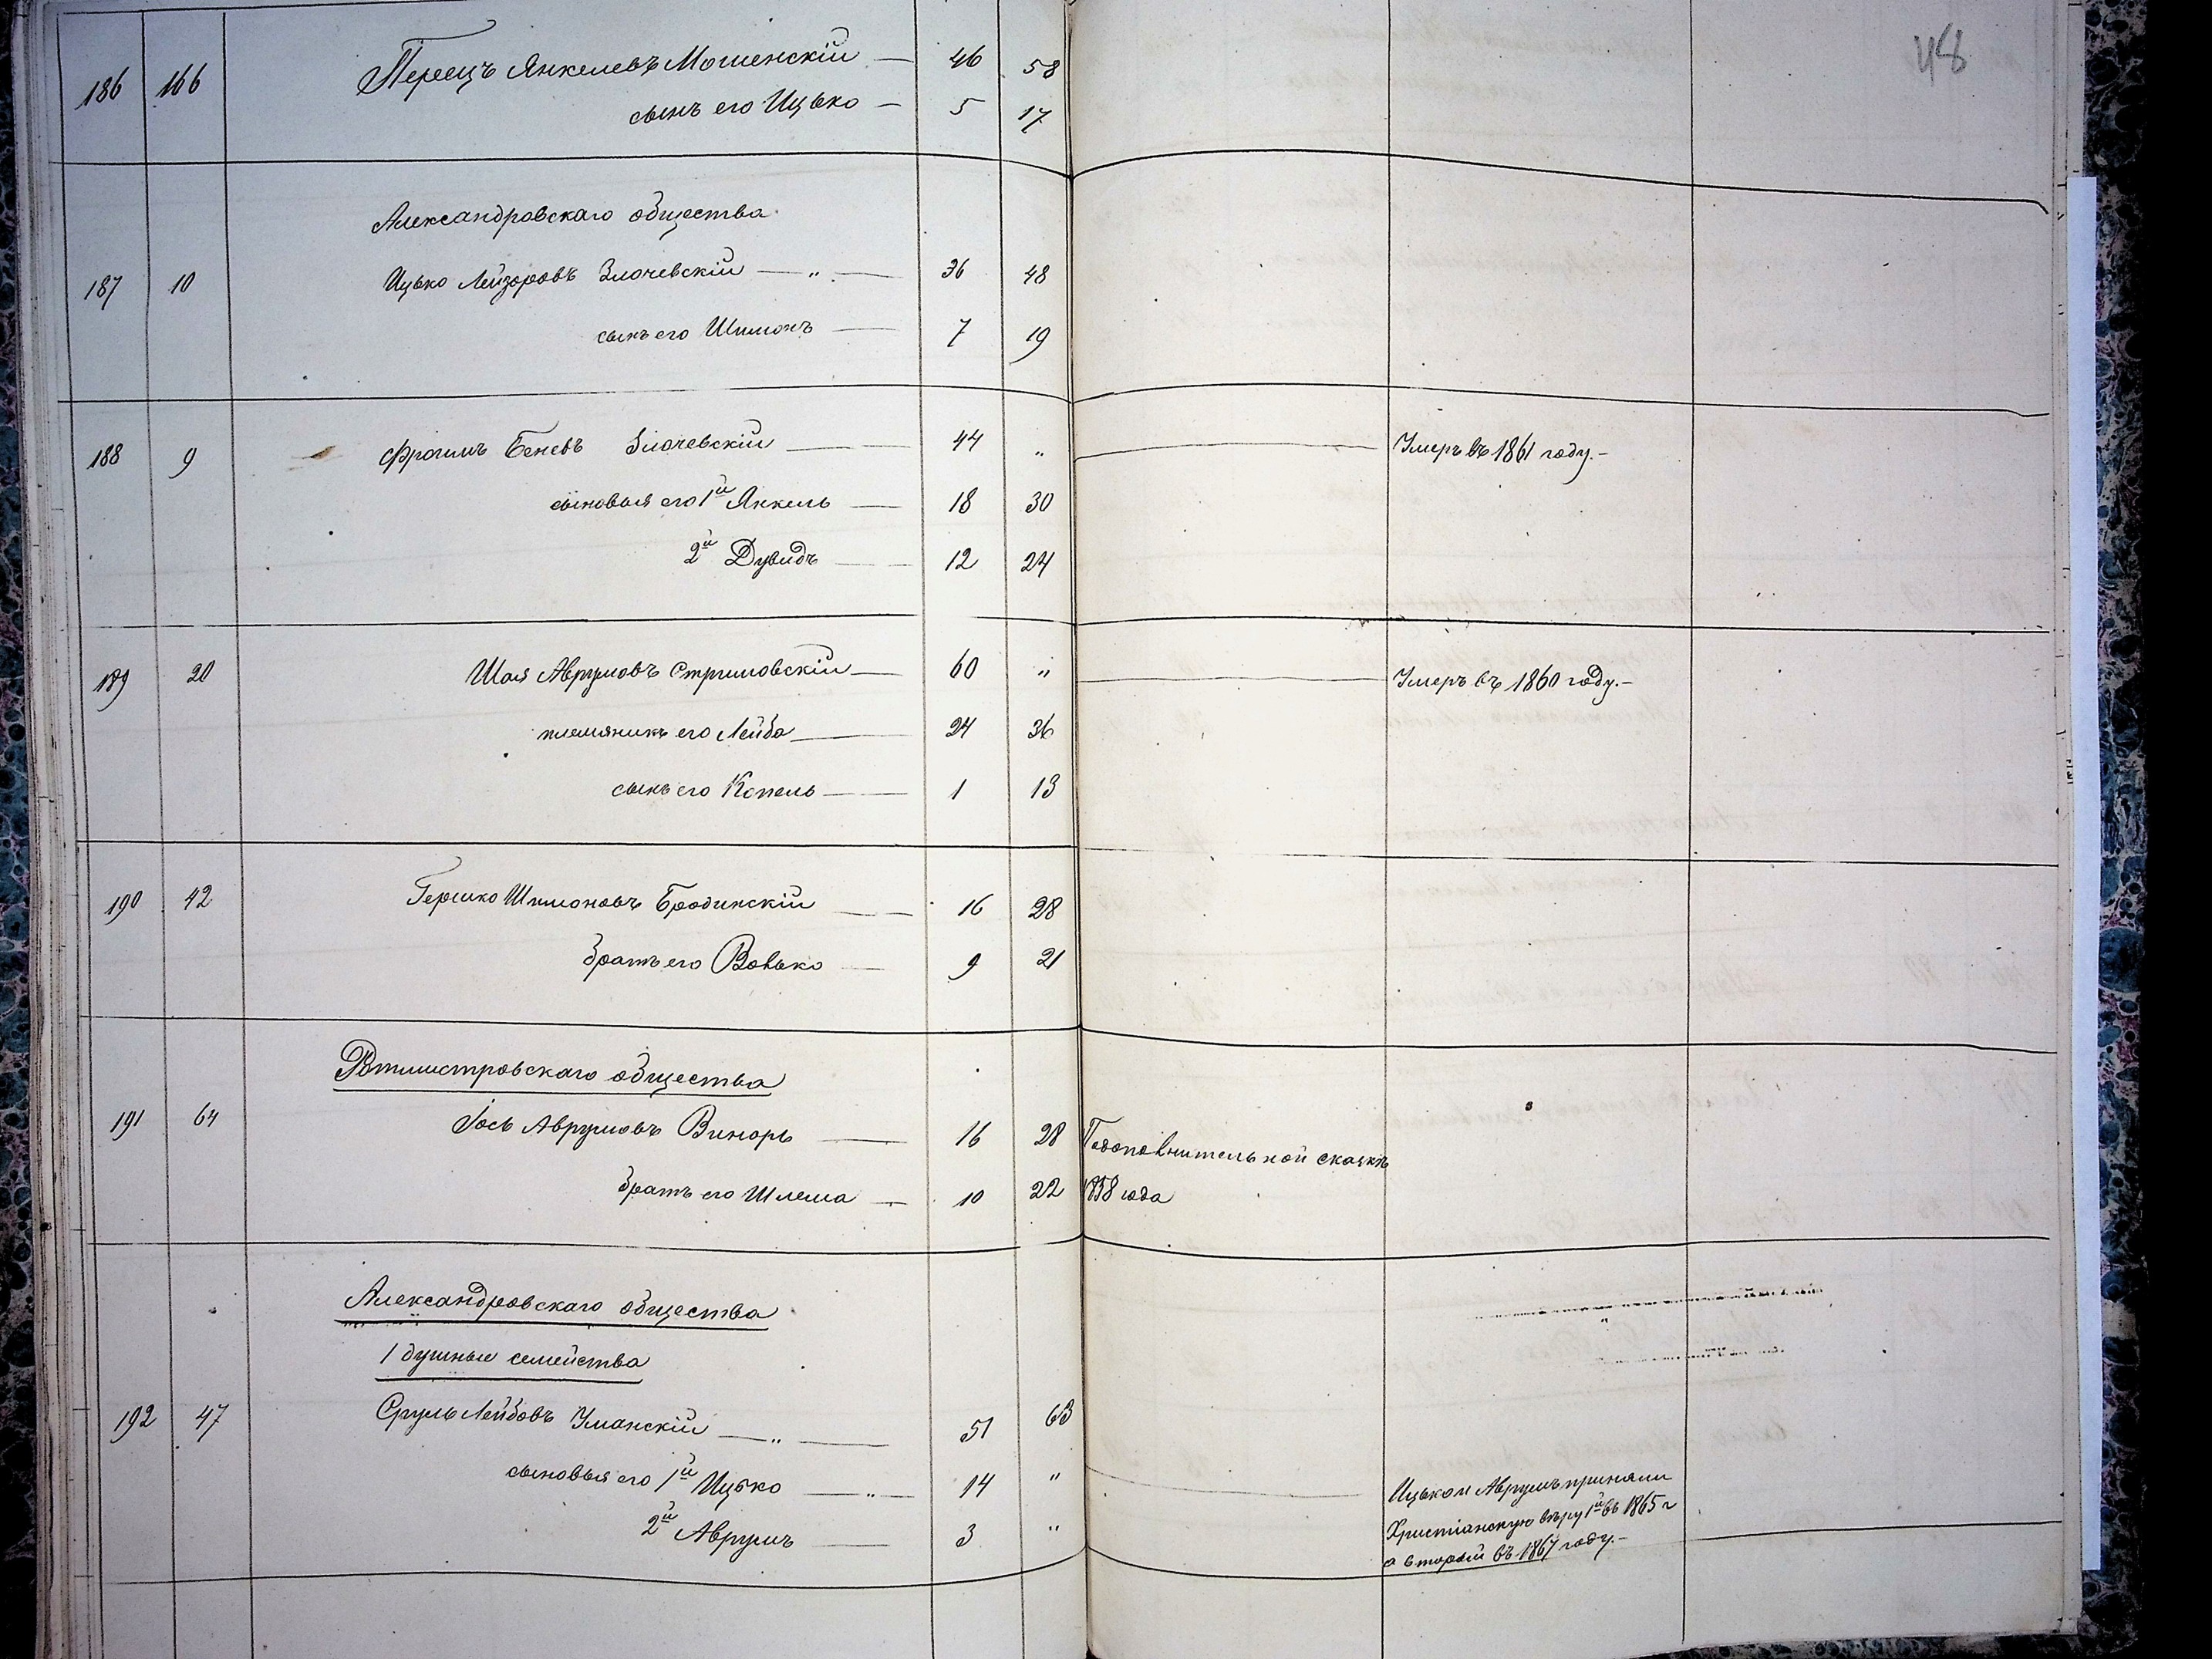 48
186 166 Перецъ Янкелевъ Мошенскій — 46 58
сынъ его Ицько — 5 17
Александровскаго общества
187 10 Ицько Лейзоровъ Злочевскій — „ — 36 48
сынъ его Шимонъ — 7 19
188 9 Фроимъ Беневъ Злочевскій — 44 „ — Умеръ въ 1861 году.–
сыновья его 1й Янкель — 18 30
2й Дувидъ — 12 24
189 20 Шая Аврумовъ Стримовскій — 60 „ — Умеръ въ 1860 году.–
племяникъ его Лейба — 24 36
сынъ его Копель — 1 13
190 42 Гершко Шимоновъ Бродинскій — 16 28
братъ его Вовько — 9 21
Ротмистровскаго общества
191 64 Іось Аврумовъ Винорь — 16 28 Подополнительной сказкѣ
братъ его Шлема — 10 22 1858 года
Александровскаго общества
1 душные семейства
192 47 Сруль Лейбовъ Уманскій — „ — 51 63
сыновья его 1й Ицько — „ — 14 „ — Ицько и Аврумъ приняли
2й Аврумъ — 3 „ Христіанскую вѣру 1й въ 1865 г
а вторый въ 1867 году.–